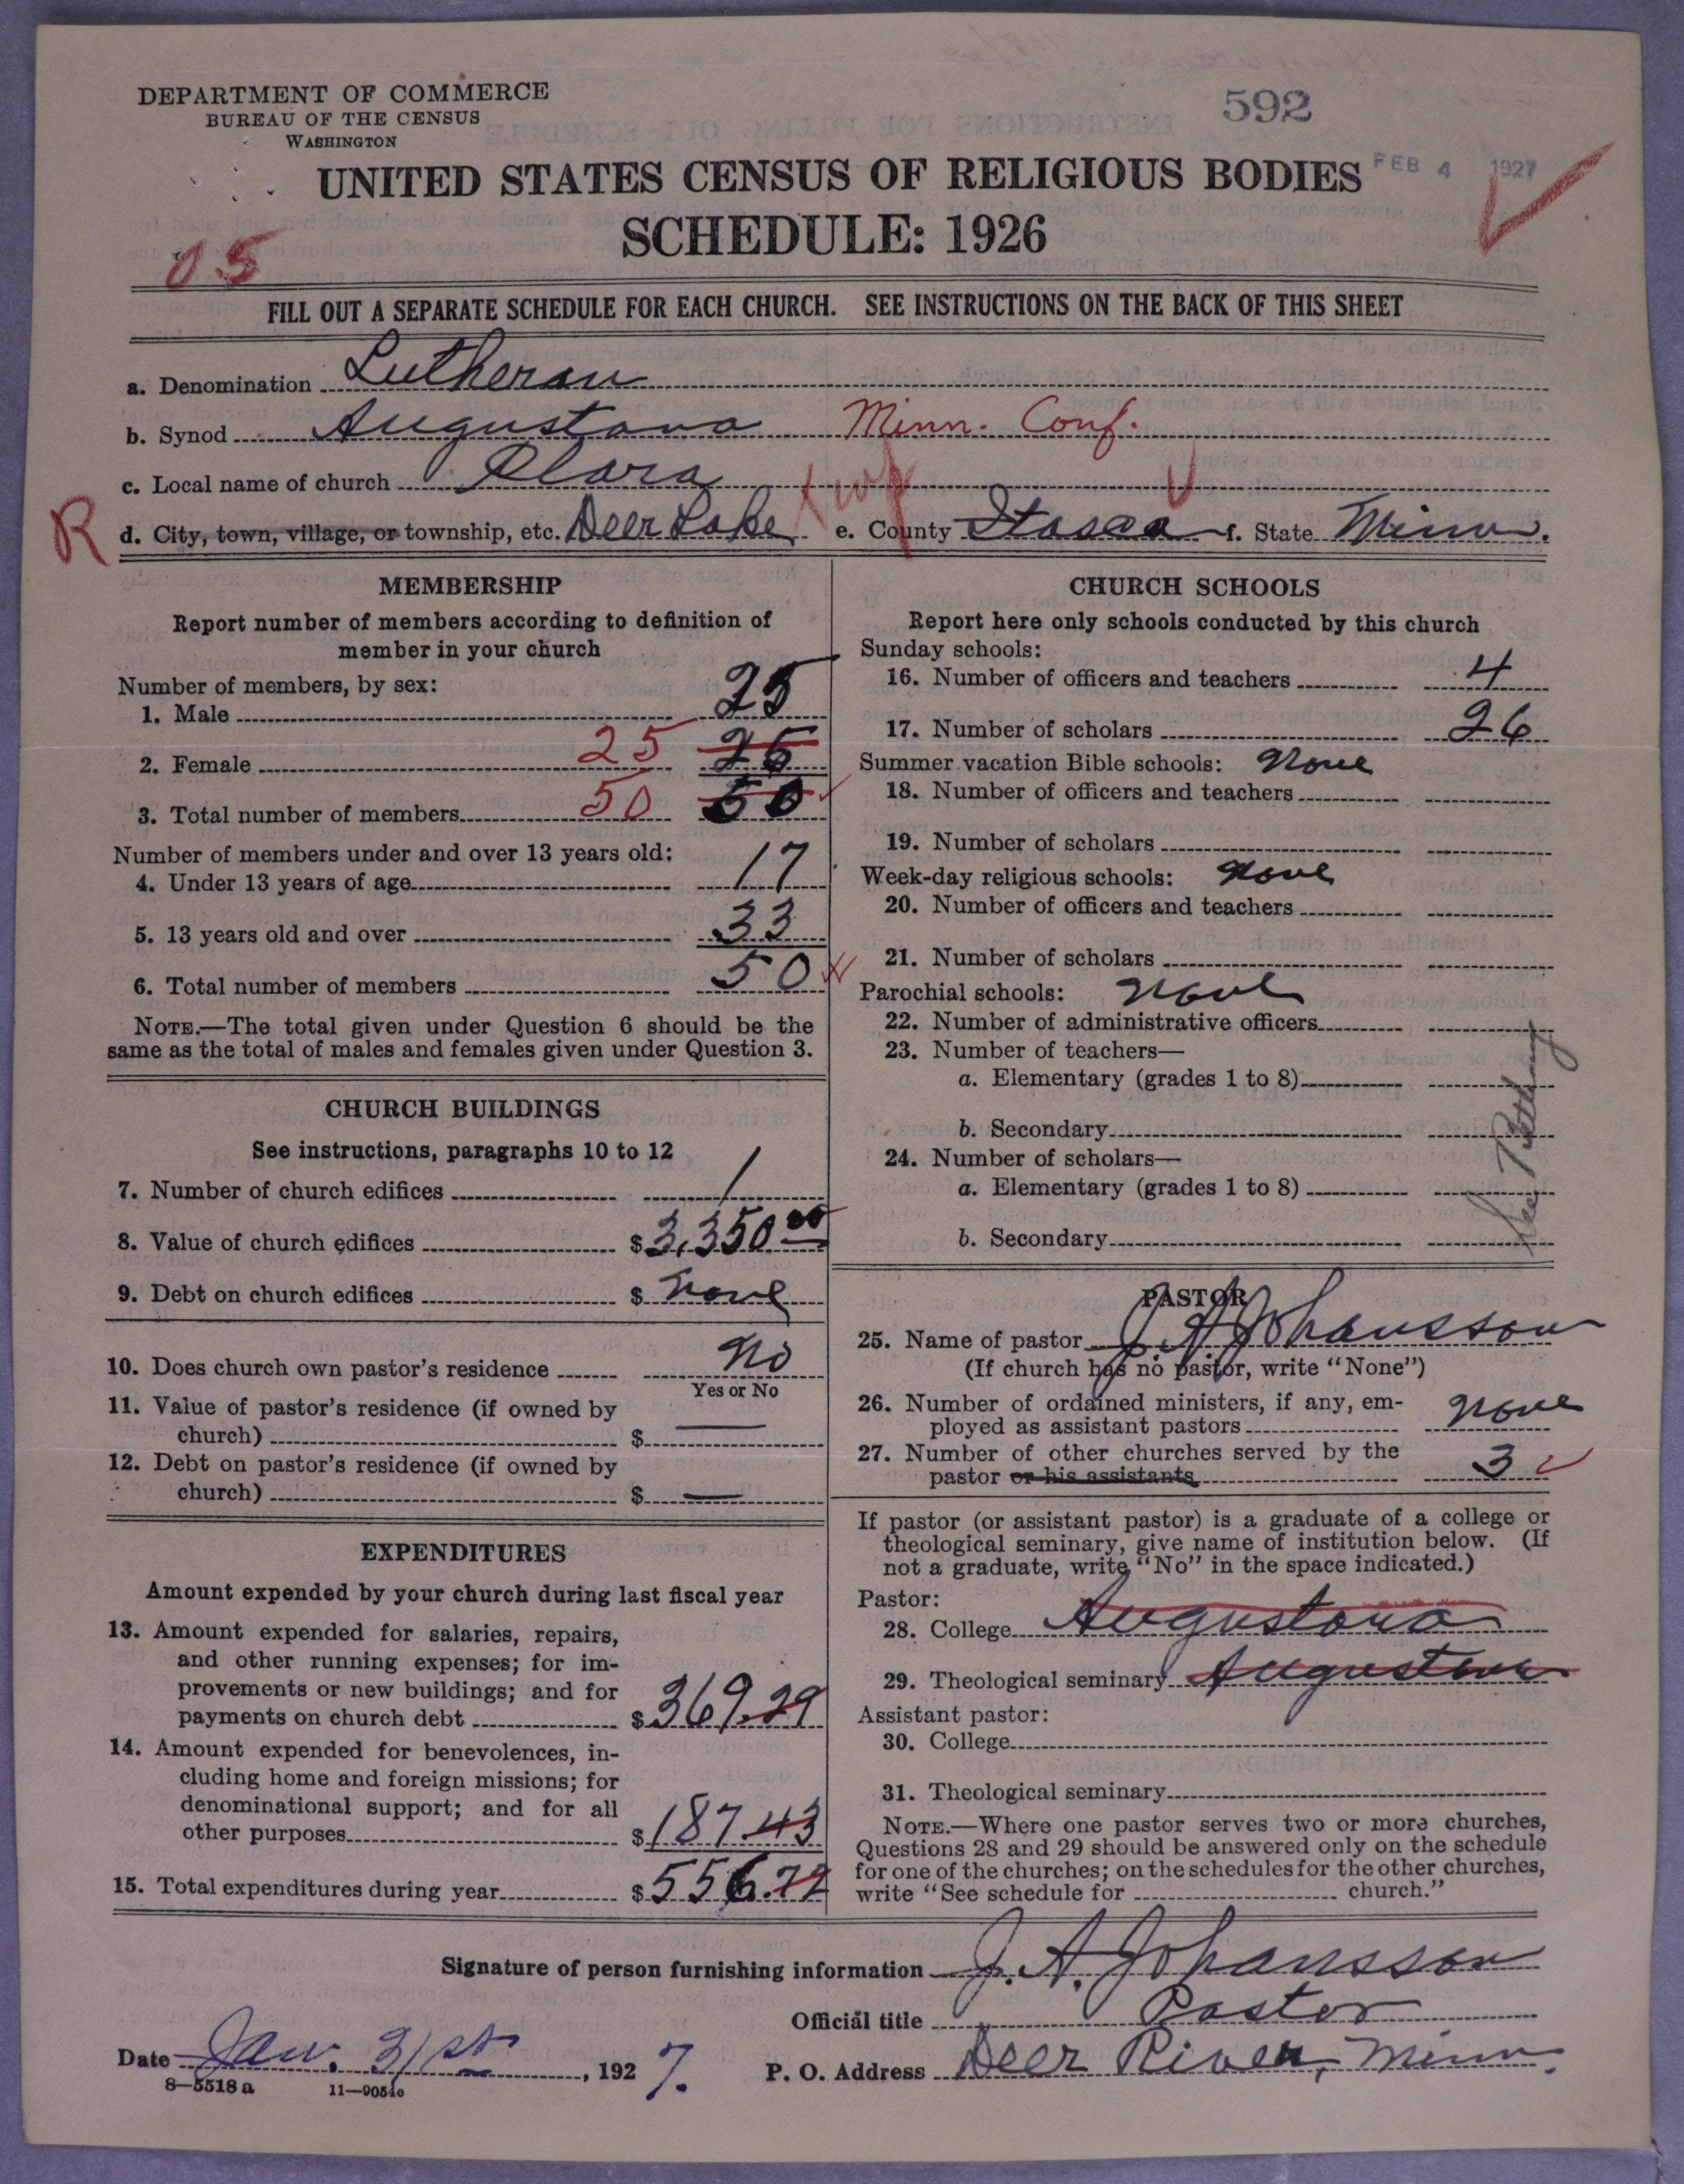 DEPARTMENT OF COMMERCE
BUREAU OF THE CENSUS
WASHINGTON
592
UNITED STATES CENSUS OF RELIGIOUS BODIES
FEB 4 1927
SCHEDULE: 1926
05
FILL OUT A SEPARATE SCHEDULE FOR EACH CHURCH. SEE INSTRUCTIONS ON THE BACK OF THIS SHEET
a. Denomination Lutheran
b. Synod Augustana Minn. Conf.
c. Local name of church Clara
R d. City, town, village, or township, etc. Deer Lake twp e. County Itasca f. State Minn.
MEMBERSHIP
Report number of members according to definition of
member in your church
Number of members, by sex:
1. Male 25
2. Female 25 25
3. Total number of members 50 50
Number of members under and over 13 years old:
4. Under 13 years of age 17
5. 13 years old and over 33
6. Total number of members 50
NOTE.—The total given under Question 6 should be the
same as the total of males and females given under Question 3.
CHURCH BUILDINGS
See instructions, paragraphs 10 to 12
7. Number of church edifices 1
8. Value of church edifices $3,350.00
9. Debt on church edifices $ none
10. Does church own pastor's residence No
Yes or No
11. Value of pastor's residence (if owned by
church) $ —
12. Debt on pastor's residence (if owned by
church) $ —
EXPENDITURES
Amount expended by your church during last fiscal year
13. Amount expended for salaries, repairs,
and other running expenses; for im-
provements or new buildings; and for
payments on church debt $369.29
14. Amount expended for benevolences, in-
cluding home and foreign missions; for
denominational support; and for all
other purposes $187.43
15. Total expenditures during year $556.72
CHURCH SCHOOLS
Report here only schools conducted by this church
Sunday schools:
16. Number of officers and teachers 4
17. Number of scholars 26
Summer vacation Bible schools: None
18. Number of officers and teachers
19. Number of scholars
Week-day religious schools: None
20. Number of officers and teachers
21. Number of scholars
Parochial schools: None
22. Number of administrative officers
23. Number of teachers—
a. Elementary (grades 1 to 8)
b. Secondary
24. Number of scholars—
a. Elementary (grades 1 to 8)
b. Secondary
See
PASTOR
25. Name of pastor J. A. Johansson
(If church has no pastor, write "None")
26. Number of ordained ministers, if any, em-
ployed as assistant pastors None
27. Number of other churches served by the
pastor or his assistants 3
If pastor (or assistant pastor) is a graduate of a college or
theological seminary, give name of institution below. (If
not a graduate, write "No" in the space indicated.)
Pastor:
28. College Augustana
29. Theological seminary Augustana
Assistant pastor:
30. College
31. Theological seminary
NOTE.—Where one pastor serves two or more churches,
Questions 28 and 29 should be answered only on the schedule
for one of the churches; on the schedules for the other churches,
write "See schedule for church."
Signature of person furnishing information J. A. Johansson
Official title Pastor
Date Jan. 31st, 1927. P. O. Address Deer River, Minn.
8—5518 a 11—9051o